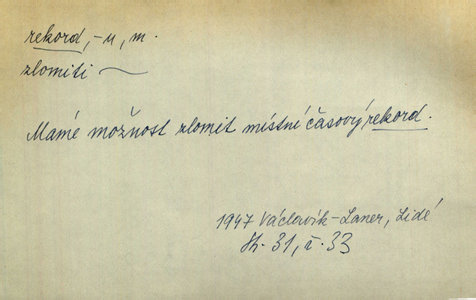 rekord, -u, m.
zlomiti ~
Mamé možnost zlomit místní časový rekord.
1947 Václavík-Laner, Lidé
Sh. 31, č. 33